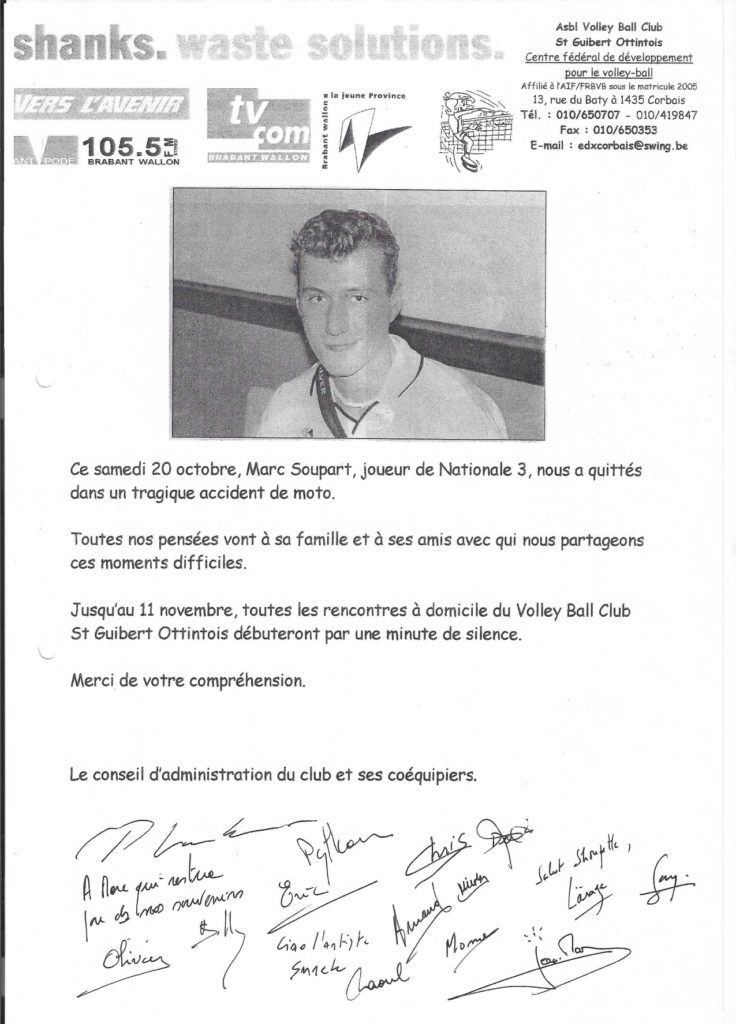 shanks. waste solutions.
Asbl Volley Ball Club
St Guibert Ottintois
Centre fédéral de développement
pour le volley-ball
Affilié à l'AIF/FRBVB sous le matricule 2005
13, rue du Baty à 1435 Corbais
Tél. : 010/650707 - 010/419847
Fax : 010/650353
E-mail : edxcorbais@swing.be
VERS L'AVENIR
ANTIPODE
105.5 FM
BRABANT WALLON
tv
com
BRABANT WALLON
Brabant wallon
la jeune Province
Ce samedi 20 octobre, Marc Soupart, joueur de Nationale 3, nous a quittés
dans un tragique accident de moto.
Toutes nos pensées vont à sa famille et à ses amis avec qui nous partageons
ces moments difficiles.
Jusqu'au 11 novembre, toutes les rencontres à domicile du Volley Ball Club
St Guibert Ottintois débuteront par une minute de silence.
Merci de votre compréhension.
Le conseil d'administration du club et ses coéquipiers.
Chris
A Marc qui restera
nos souvenirs
Eric
Armand
Salut
Olivier
Billy
Ciao l'artiste
Raoul